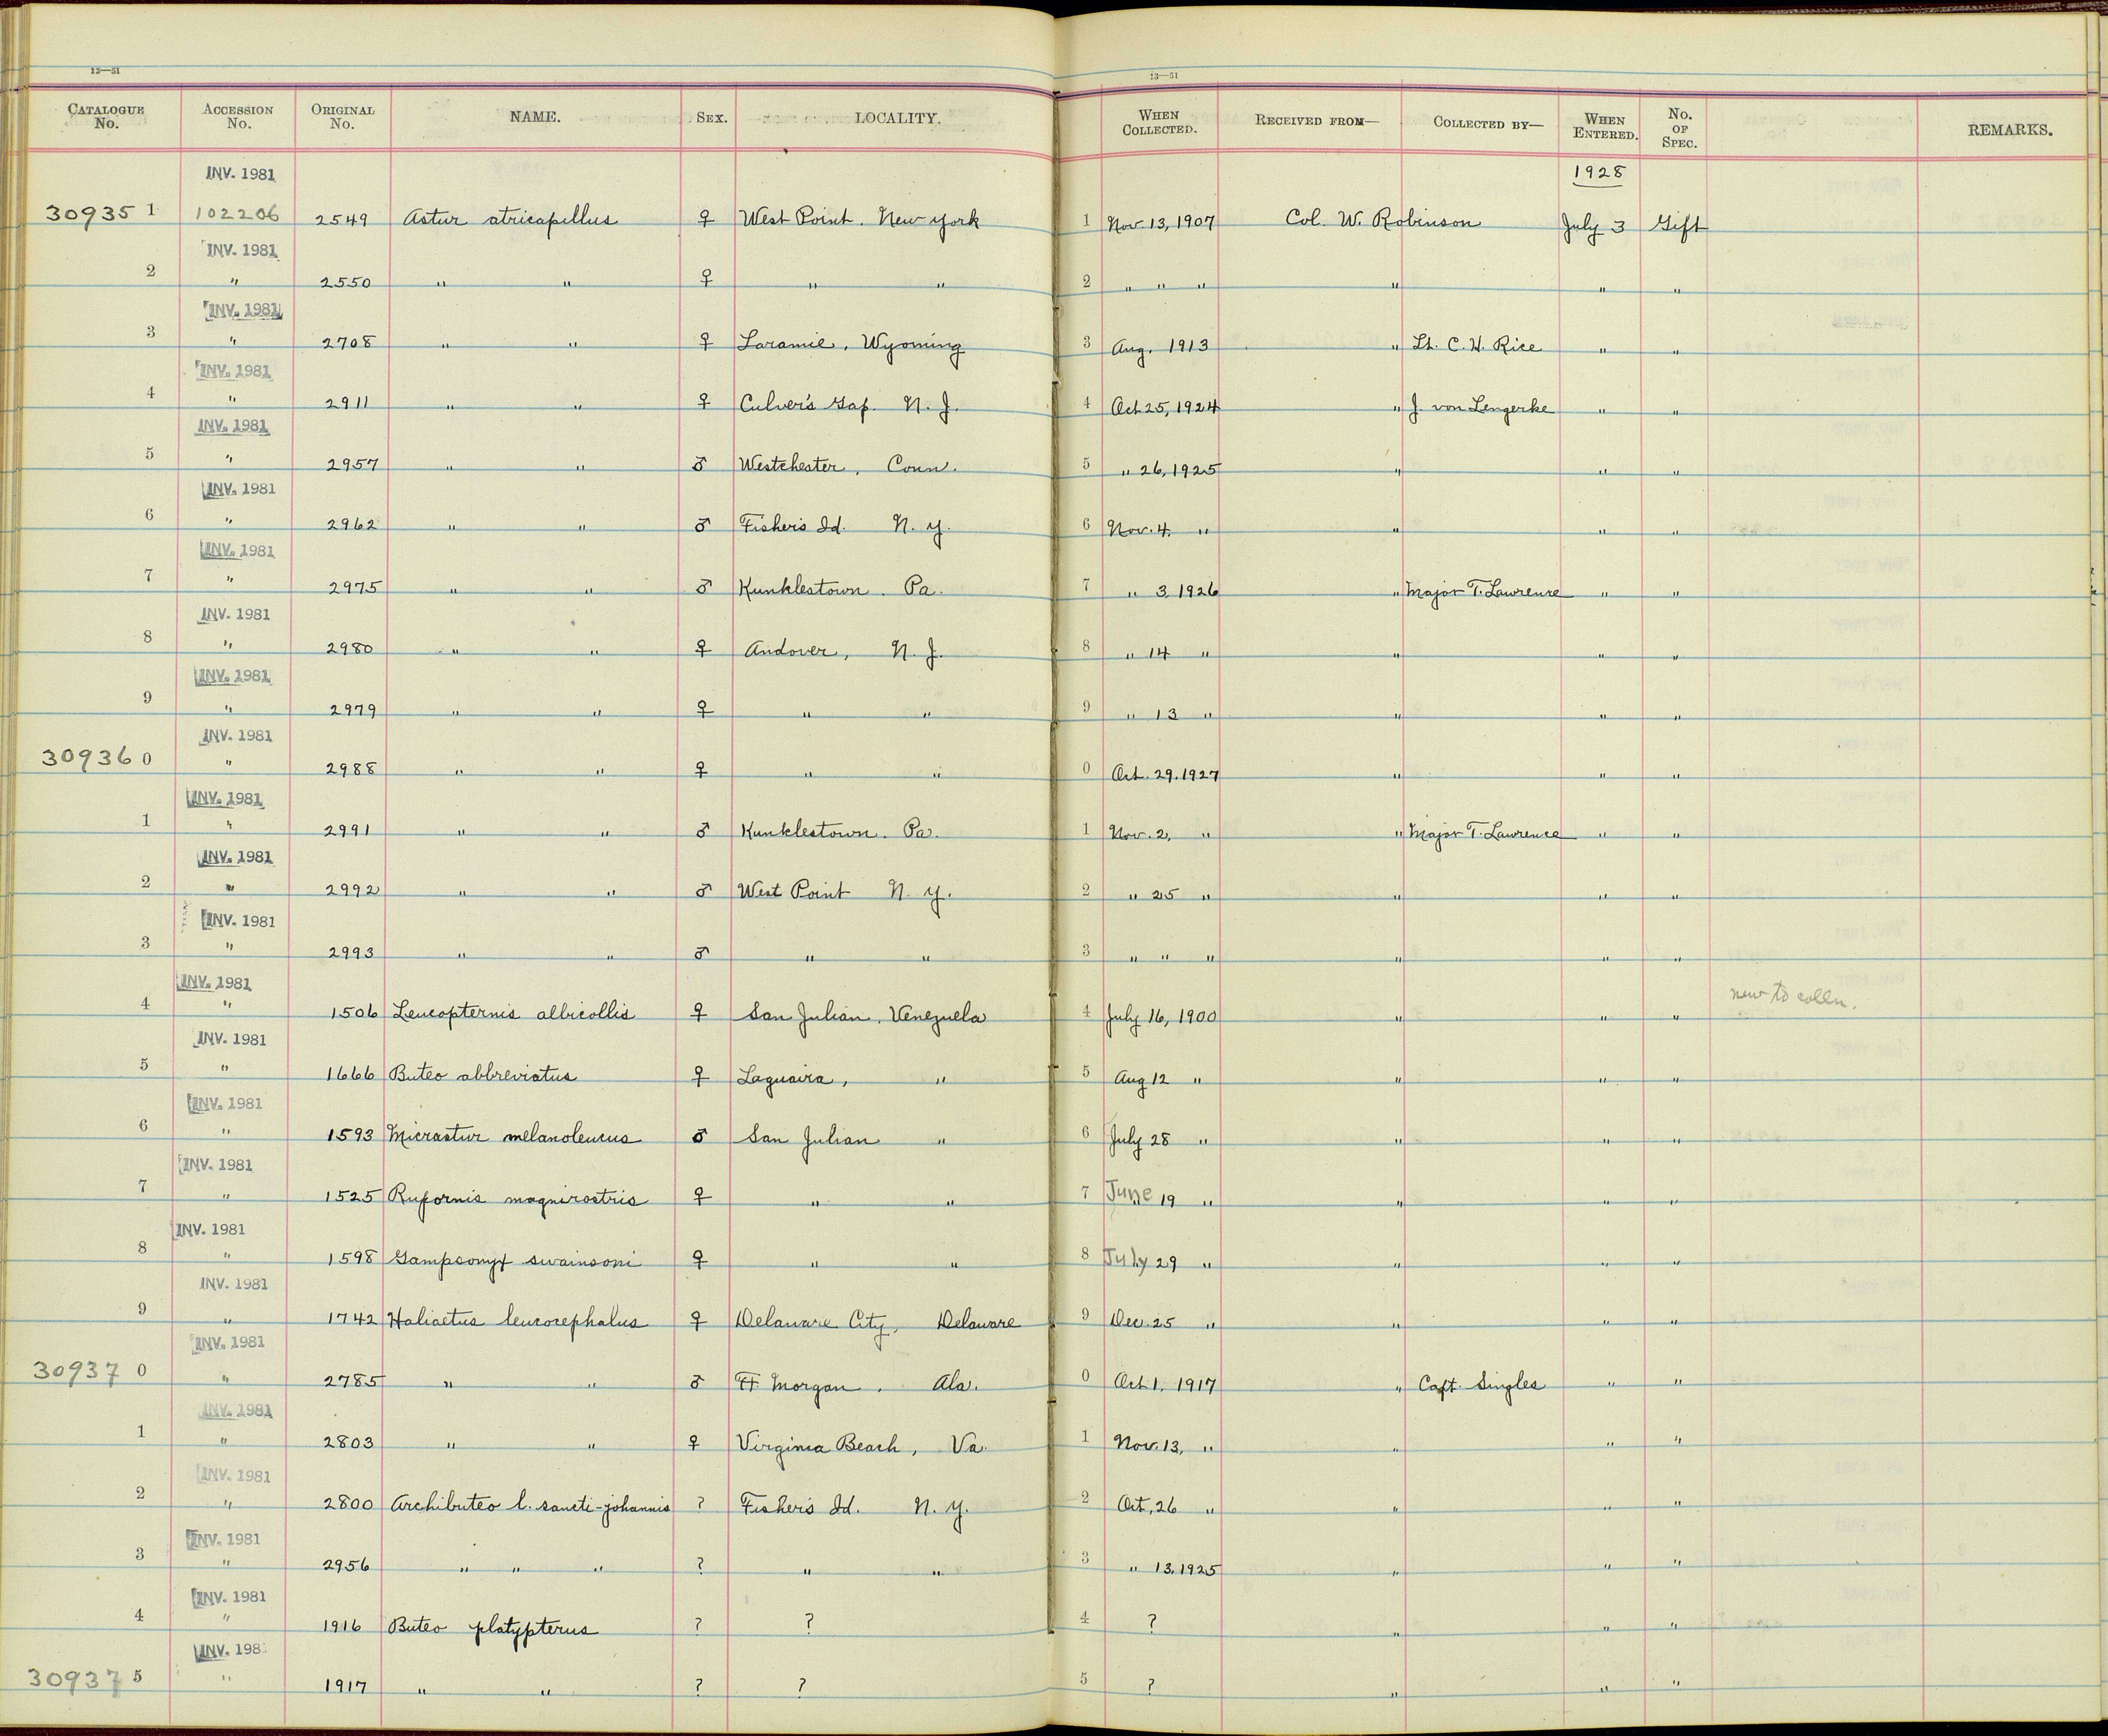 13—51 13—51
CATALOGUE No. ACCESSION No. ORIGINAL No. NAME. SEX. LOCALITY. WHEN COLLECTED. RECEIVED FROM— COLLECTED BY— WHEN ENTERED. No. OF SPEC. REMARKS.
INV. 1981 1928
30935 1 102206 2549 Astur atricapillus ♀ West Point. New York 1 Nov. 13, 1907 Col. W. Robinson July 3 Gift
INV. 1981
2 " 2550 " " ♀ " " 2 " " " " " "
INV. 1981
3 " 2708 " " ♀ Laramie, Wyoming 3 Aug. 1913 " Lt. C. H. Rice " "
INV. 1981
4 " 2911 " " ♀ Culver's Gap. N. J. 4 Oct 25, 1924 " J. von Lengerke " "
INV. 1981
5 " 2957 " " ♂ Westchester, Conn. 5 " 26, 1925 " " "
INV. 1981
6 " 2962 " " ♂ Fisher's Id. N. Y. 6 Nov. 4. " " " "
INV. 1981
7 " 2975 " " ♂ Kunklestown. Pa. 7 " 3 1926 " Major T. Lawrence " "
INV. 1981
8 " 2980 " " ♀ Andover, N. J. 8 " 14 " " " "
INV. 1981
9 " 2979 " " ♀ " " 9 " 13 " " " "
INV. 1981
30936 0 " 2988 " " ♀ " " 0 Oct. 29. 1927 " " "
INV. 1981
1 " 2991 " " ♂ Kunklestown. Pa. 1 Nov. 2, " " Major T. Lawrence " "
INV. 1981
2 " 2992 " " ♂ West Point N. Y. 2 " 25 " " " "
INV. 1981
3 " 2993 " " ♂ " " 3 " " " " " "
INV. 1981
4 " 1506 Leucopternis albicollis ♀ San Julian, Venezuela 4 July 16, 1900 " " " new to colln.
INV. 1981
5 " 1666 Buteo abbreviatus ♀ Laguaira, " 5 Aug 12 " " " "
INV. 1981
6 " 1593 Micrastur melanoleucus ♂ San Julian " 6 July 28 " " " "
INV. 1981
7 " 1525 Rupornis magnirostris ♀ " " 7 June 19 " " " "
INV. 1981
8 " 1598 Gampsonyx swainsoni ♀ " " 8 July 29 " " " "
INV. 1981
9 " 1742 Haliaetus leucocephalus ♀ Delaware City, Delaware 9 Dec. 25 " " " "
INV. 1981
30937 0 " 2785 " " ♂ Ft Morgan, Ala. 0 Oct 1. 1917 " Capt. Singles " "
INV. 1981
1 " 2803 " " ♀ Virginia Beach, Va. 1 Nov. 13, " " " "
INV. 1981
2 " 2800 Archibuteo l. sancti-johannis ? Fisher's Id. N. Y. 2 Oct, 26 " " " "
INV. 1981
3 " 2956 " " " ? " " 3 " 13, 1925 " " "
INV. 1981
4 " 1916 Buteo platypterus ? ? 4 ? " " "
INV. 198
30937 5 " 1917 " " ? ? 5 ? " " "